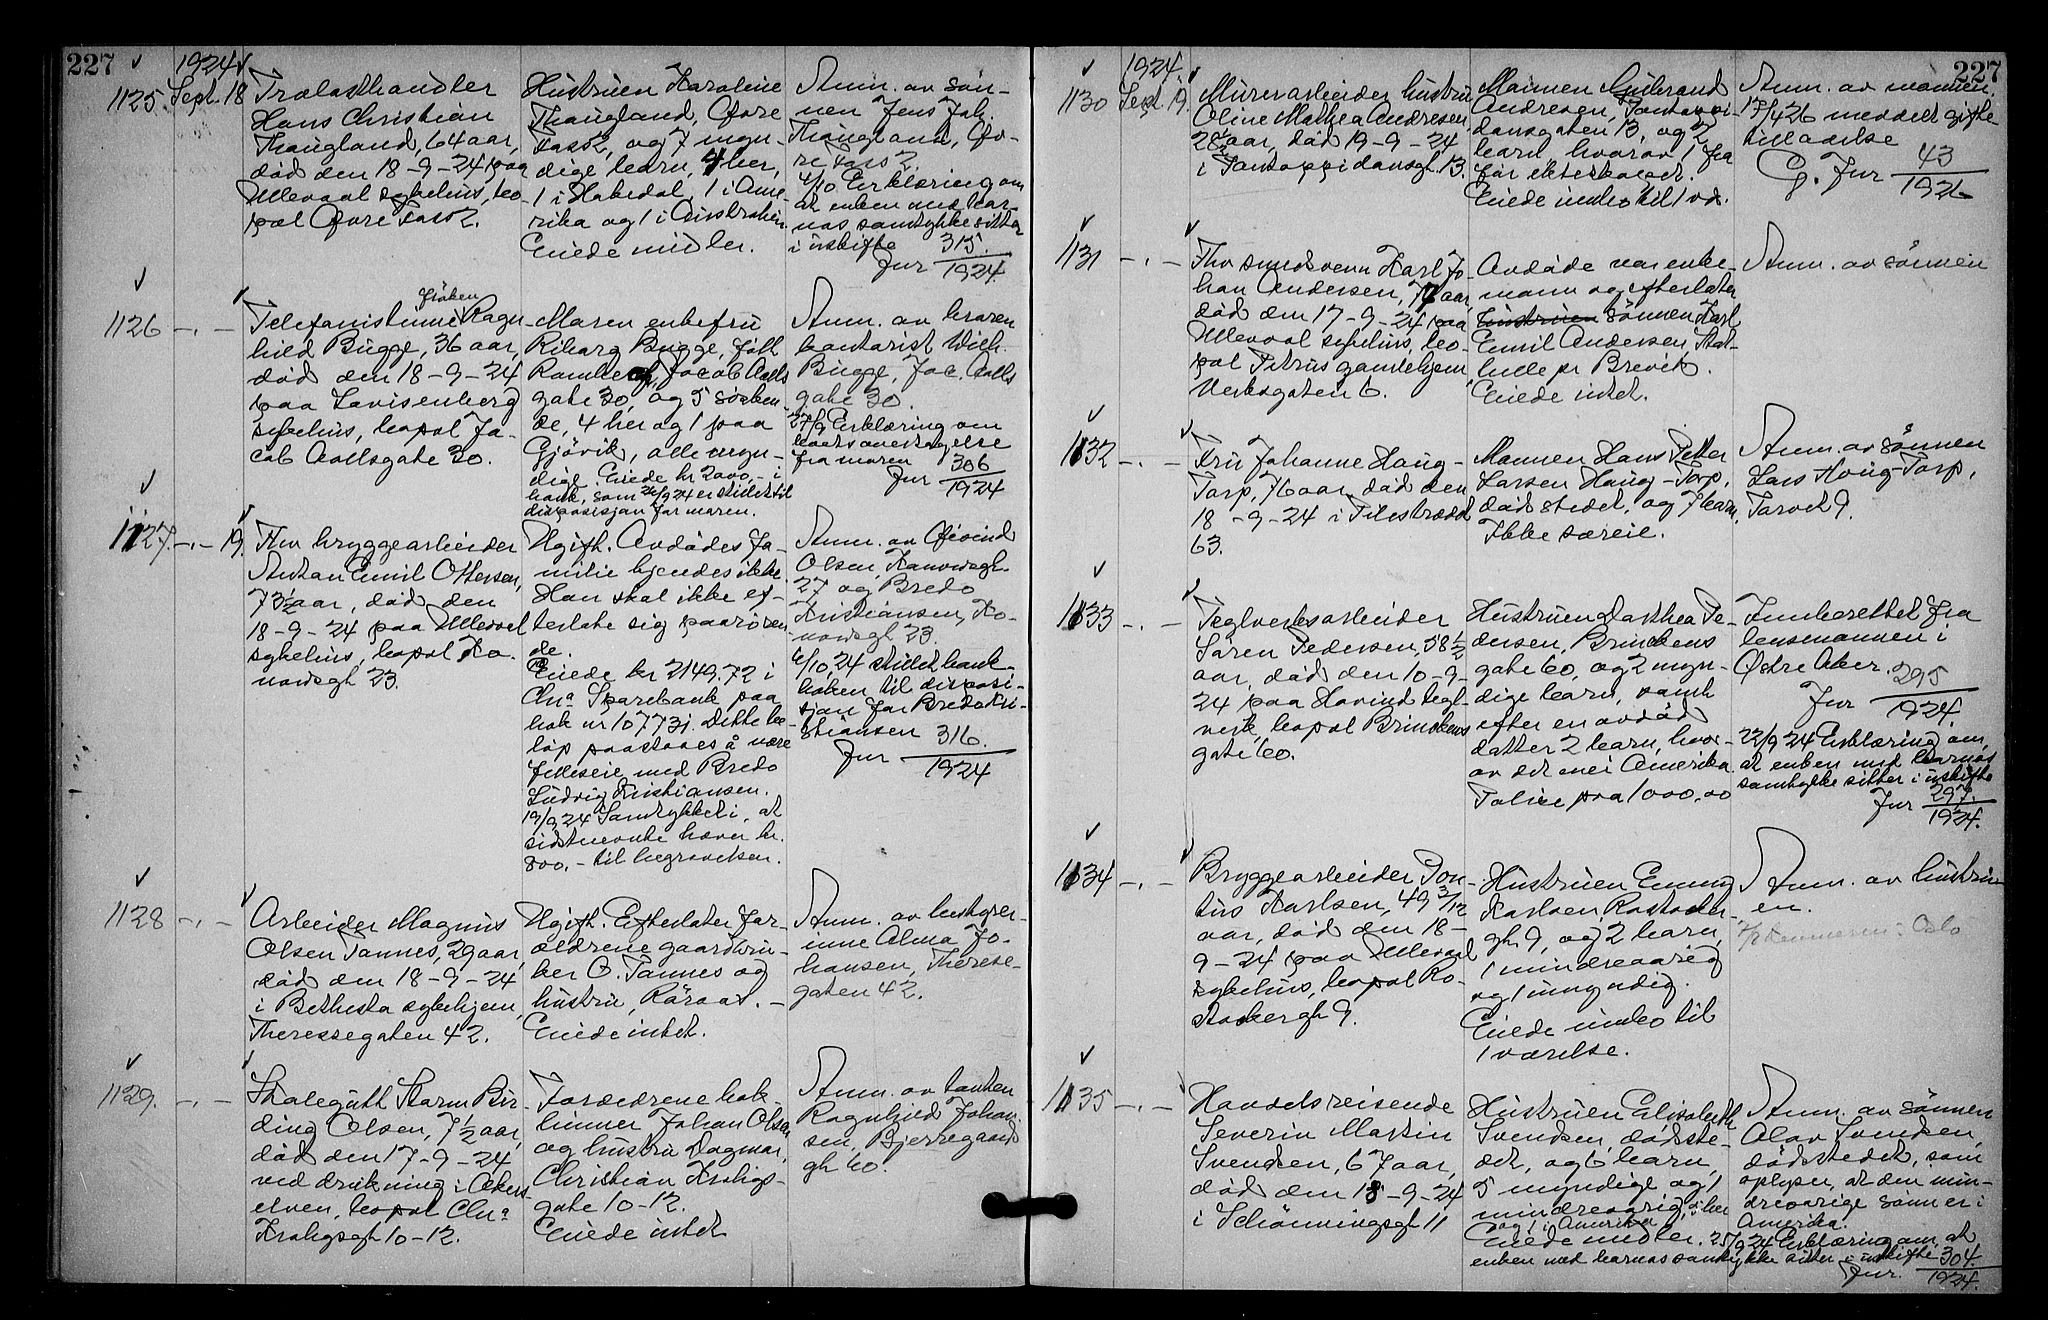 227
1924
1125. Sept. 18
Trælasthandler
Hans Christian
Thaugland, 64 aar,
død den 18-9-24 paa
Ullevaal sykehus, bo-
pæl Øvre Foss 2.
Hustruen Karoline
Thaugland, Øvre
Foss 2, og 7 myn-
dige barn, 4 her,
1 i Hakedal, 1 i Ame-
rika og 1 i Australien.
Eiede midler.
Anm. av søn-
nen Jens Joh.
Thaugland, Øv-
re Foss 2.
4/10 Erklæring om
at enken med bar-
nas samtykke sitter
i uskifte 315.
Jur 1924.
1126 -.-
Frøken
Telefonistinne Ragn-
hild Bugge, 36 aar,
død den 18-9-24
paa Lovisenberg
sykehus, bopæl Ja-
cob Aallsgate 30.
Moren enkefru
Bugge, født
Ramberg, Jacob Aalls
gate 30, og 5 søsken-
de, 4 her og 1 paa
Gjøvik, alle myn-
dige. Eiede kr 2000,- i
bank, som 26/9 24 er stillet til
disposisjon for moren.
Anm. av broren
kontorist Wilh.
Bugge, Jac. Aalls
gate 30.
27/9 Erklæring om
boets overtagelse
fra moren 306
Jur 1924
1127. -.- 19.
Fhv bryggearbeider
Anton Emil Ottersen,
73 1/2 aar, død den
18-9-24 paa Ullevel
sykehus, bopæl Ko-
nowsgt 23.
Ugift. Avdødes fa-
milie kjendes ikke.
Han skal ikke ef-
terlate sig paarøren-
de.
Eiede kr 2149.72 i
Chra Sparebank paa
bok nr 107731. Dette be-
løp paastaaes å være
felleseie med Bredo
Ludvig Kristiansen.
19/9 24 Samtykket i, at
sidstnevnte hæver kr.
800,- til begravelsen.
Anm. av Øivind
Olsen, Kanowsgt.
27 og Bredo
Kristiansen, Ko-
nowsgt 23.
6/10 24 stillet bank-
boken til disposi-
sjon for Bredo Kri-
stiansen 316.
Jur 1924
1128 -.-
Arbeider Magnus
Olsen Tannes, 29 aar,
død den 18-9-24
i Bethesta sykehjem,
Theressegaten 42.
Ugift. Efterlater for-
ældrene gaardbru-
ker O. Tannes og
hustru, Røraas. -
Eiede intet.
Anm. av bestyrer-
inne Alma Jo-
hansen, Therese-
gaten 42.
1129. -.-
Storm Bir-
ding Olsen, 7 1/2 aar,
død den 17-9-24
ved drukning i Akers-
elven, bopæl Chra
Krohgsgt 10-12.
Forældrene bok-
binner Johan Olsen
og hustru Dagmar,
Christian Krohgs-
gate 10-12.
Eiede intet
Anm. av tanten
Ragnhild Johan-
sen, Bjerregaards
gt 60.
227
1924.
1130 Sept. 19.
Murerarbeider hustru
Oline Mathea Andresen,
aar, død 19-9-24
i Fantoppidansgt. 13.
Mannen Gulbrand
Andresen, Pontoppi-
dansgaten 13, og 2
barn hvorav 1 fra
før ekteskapet.
Eiede innbo til 1 vær.
Anm. av mannen.
17/4 26 meddelt gifte-
tilladelse
G. Jur 43
1926
1131 -.-
Fhv smedsvenn Karl Jo-
han Andersen, 77 aar,
død den 17-9-24 paa
Ullevaal sykehus, bo-
pæl Petrus gamlehjem,
Verksgaten 6.
Avdøde var enke-
mann og efterlater
hustruen sønnen Karl
Emil Andersen Stat-
helle pr Brevik.
Eiede intet.
Anm. av sønnen
1132 -.-
Fru Johanne Haug-
Torp, 76 aar, død den
18-9-24 i Pilestrædet
63.
Mannen Hans Petter
Larsen Haug-Torp,
dødstedet, og 7 barn.
Ikke særeie.
Anm. av sønnen
Lars Haug-Torp,
Torvet 9.
1133 -.-
Teglverksarbeider
Søren Pedersen, 58 1/2
aar, død den 10-9-
24 paa Hovind tegl-
verk, bopæl Brinckens
gate 60.
Hustruen Dorthea Pe-
dersen, Brinckens
gate 60, og 2 myn-
dige barn, samt
efter en avdød
datter 2 barn, hvor-
av det ene i Amerika.
Polise paa 1000,00
Innberettet fra
lensmannen i
Østre Aker. 295
Jur 1924.
22/9 24 Erklæring om,
at enken med barnas
samtykke sitter i uskifte
Jur 297.
1924.
1134 -.-
Bryggearbeider Pon-
tus Karlsen, 49 3/12
aar, død den 18-
9-24 paa Ullevaal
sykehus, bopæl Ro-
stockergt 9.
Hustruen Emmy
Karlsen, Rostocker-
gt. 9, og 2 barn,
1 mindreaarig
og 1 umyndig.
Eiede innbo til
1 værelse.
Anm. av hustru-
en.
Oslo
1135 -.-
Handelsreisende
Severin Martin
Svendsen, 67 aar,
død den 18-9-24
i Schønningsgt 11
Hustruen Elisabeth
Svendsen, dødste-
det, og 6 barn,
5 myndige og 1
mindreaarig, 5 her
og 1 i Amerika
Eiede midler. 25/9 24 Erklæring om, at
enken med barnas samtykke sitter i uskifte 304.
Jur. 1924.
Anm. av sønnen
Olav Svendsen,
dødstedet, som
oplyser, at den min-
dreaarige sønn er i
Amerika.